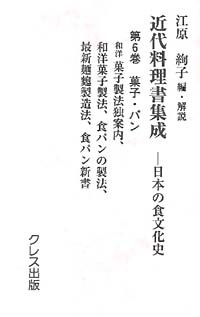 江原 絢子 編・解説
近代料理書集成
―日本の食文化史
第6巻 菓子・パン
和洋 菓子製法独案内、
和洋菓子製法、食パンの製法、
最新麺麭製造法、食パン新書
クレス出版